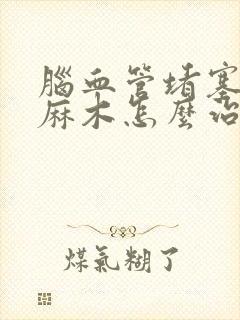 腦血管堵塞
麻木怎麼治
煤氣糊了